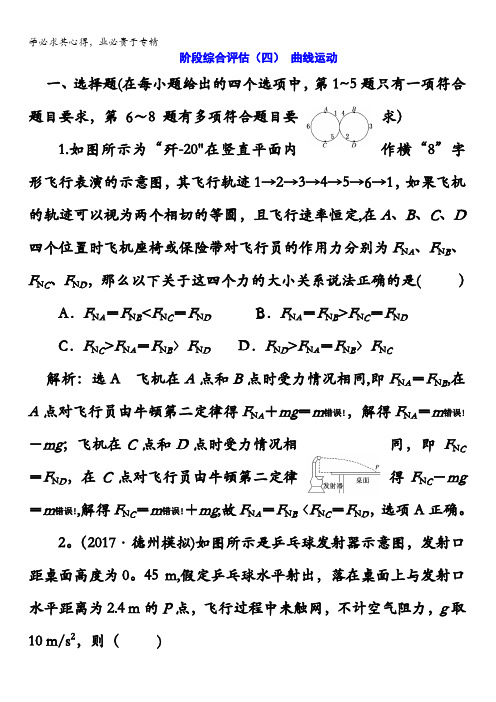 学必求其心得，业必贵于专精
阶段综合评估（四） 曲线运动
一、选择题(在每小题给出的四个选项中，第1~5题只有一项符合
题目要求，第 6～8 题有多项符合题目要求）
A 1 4 B
6 3
5 2
C D
1.如图所示为“歼-20"在竖直平面内作横“8”字
形飞行表演的示意图，其飞行轨迹1→2→3→4→5→6→1，如果飞机
的轨迹可以视为两个相切的等圆，且飞行速率恒定,在A、B、C、D
四个位置时飞机座椅或保险带对飞行员的作用力分别为FNA、FNB、
FNC、FND，那么以下关于这四个力的大小关系说法正确的是( )
A．FNA＝FNB<FNC＝FND B．FNA＝FNB>FNC＝FND
C．FNC>FNA＝FNB〉FND D．FND>FNA＝FNB〉FNC
解析：选A 飞机在A点和B点时受力情况相同,即FNA＝FNB,在
A点对飞行员由牛顿第二定律得FNA＋mg＝m错误!，解得FNA＝m错误!
－mg；飞机在C点和D点时受力情况相同，即FNC
＝FND，在C点对飞行员由牛顿第二定律得FNC－mg
P
发射器 桌面
＝m错误!,解得FNC＝m错误!＋mg,故FNA＝FNB〈FNC＝FND，选项A正确。
2。(2017·德州模拟)如图所示是乒乓球发射器示意图，发射口
距桌面高度为0。45 m,假定乒乓球水平射出，落在桌面上与发射口
水平距离为2.4 m的P点，飞行过程中未触网，不计空气阻力，g取
10 m/s²，则（ )